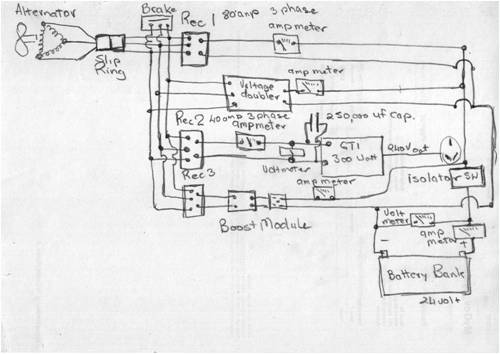 Alternator
Brake
Rec 1 80amp 3 phase
ampmeter
Slip
Ring
Voltage
doubler
ampmeter
Rec2 40amp 3 phase
ampmeter
250,000 uf cap.
GTI
300 Watt
240V out
Voltmeter
Rec3
ampmeter
isolator SW
Boost Module
Volt
meter
amp
meter
- +
Battery Bank
24volt